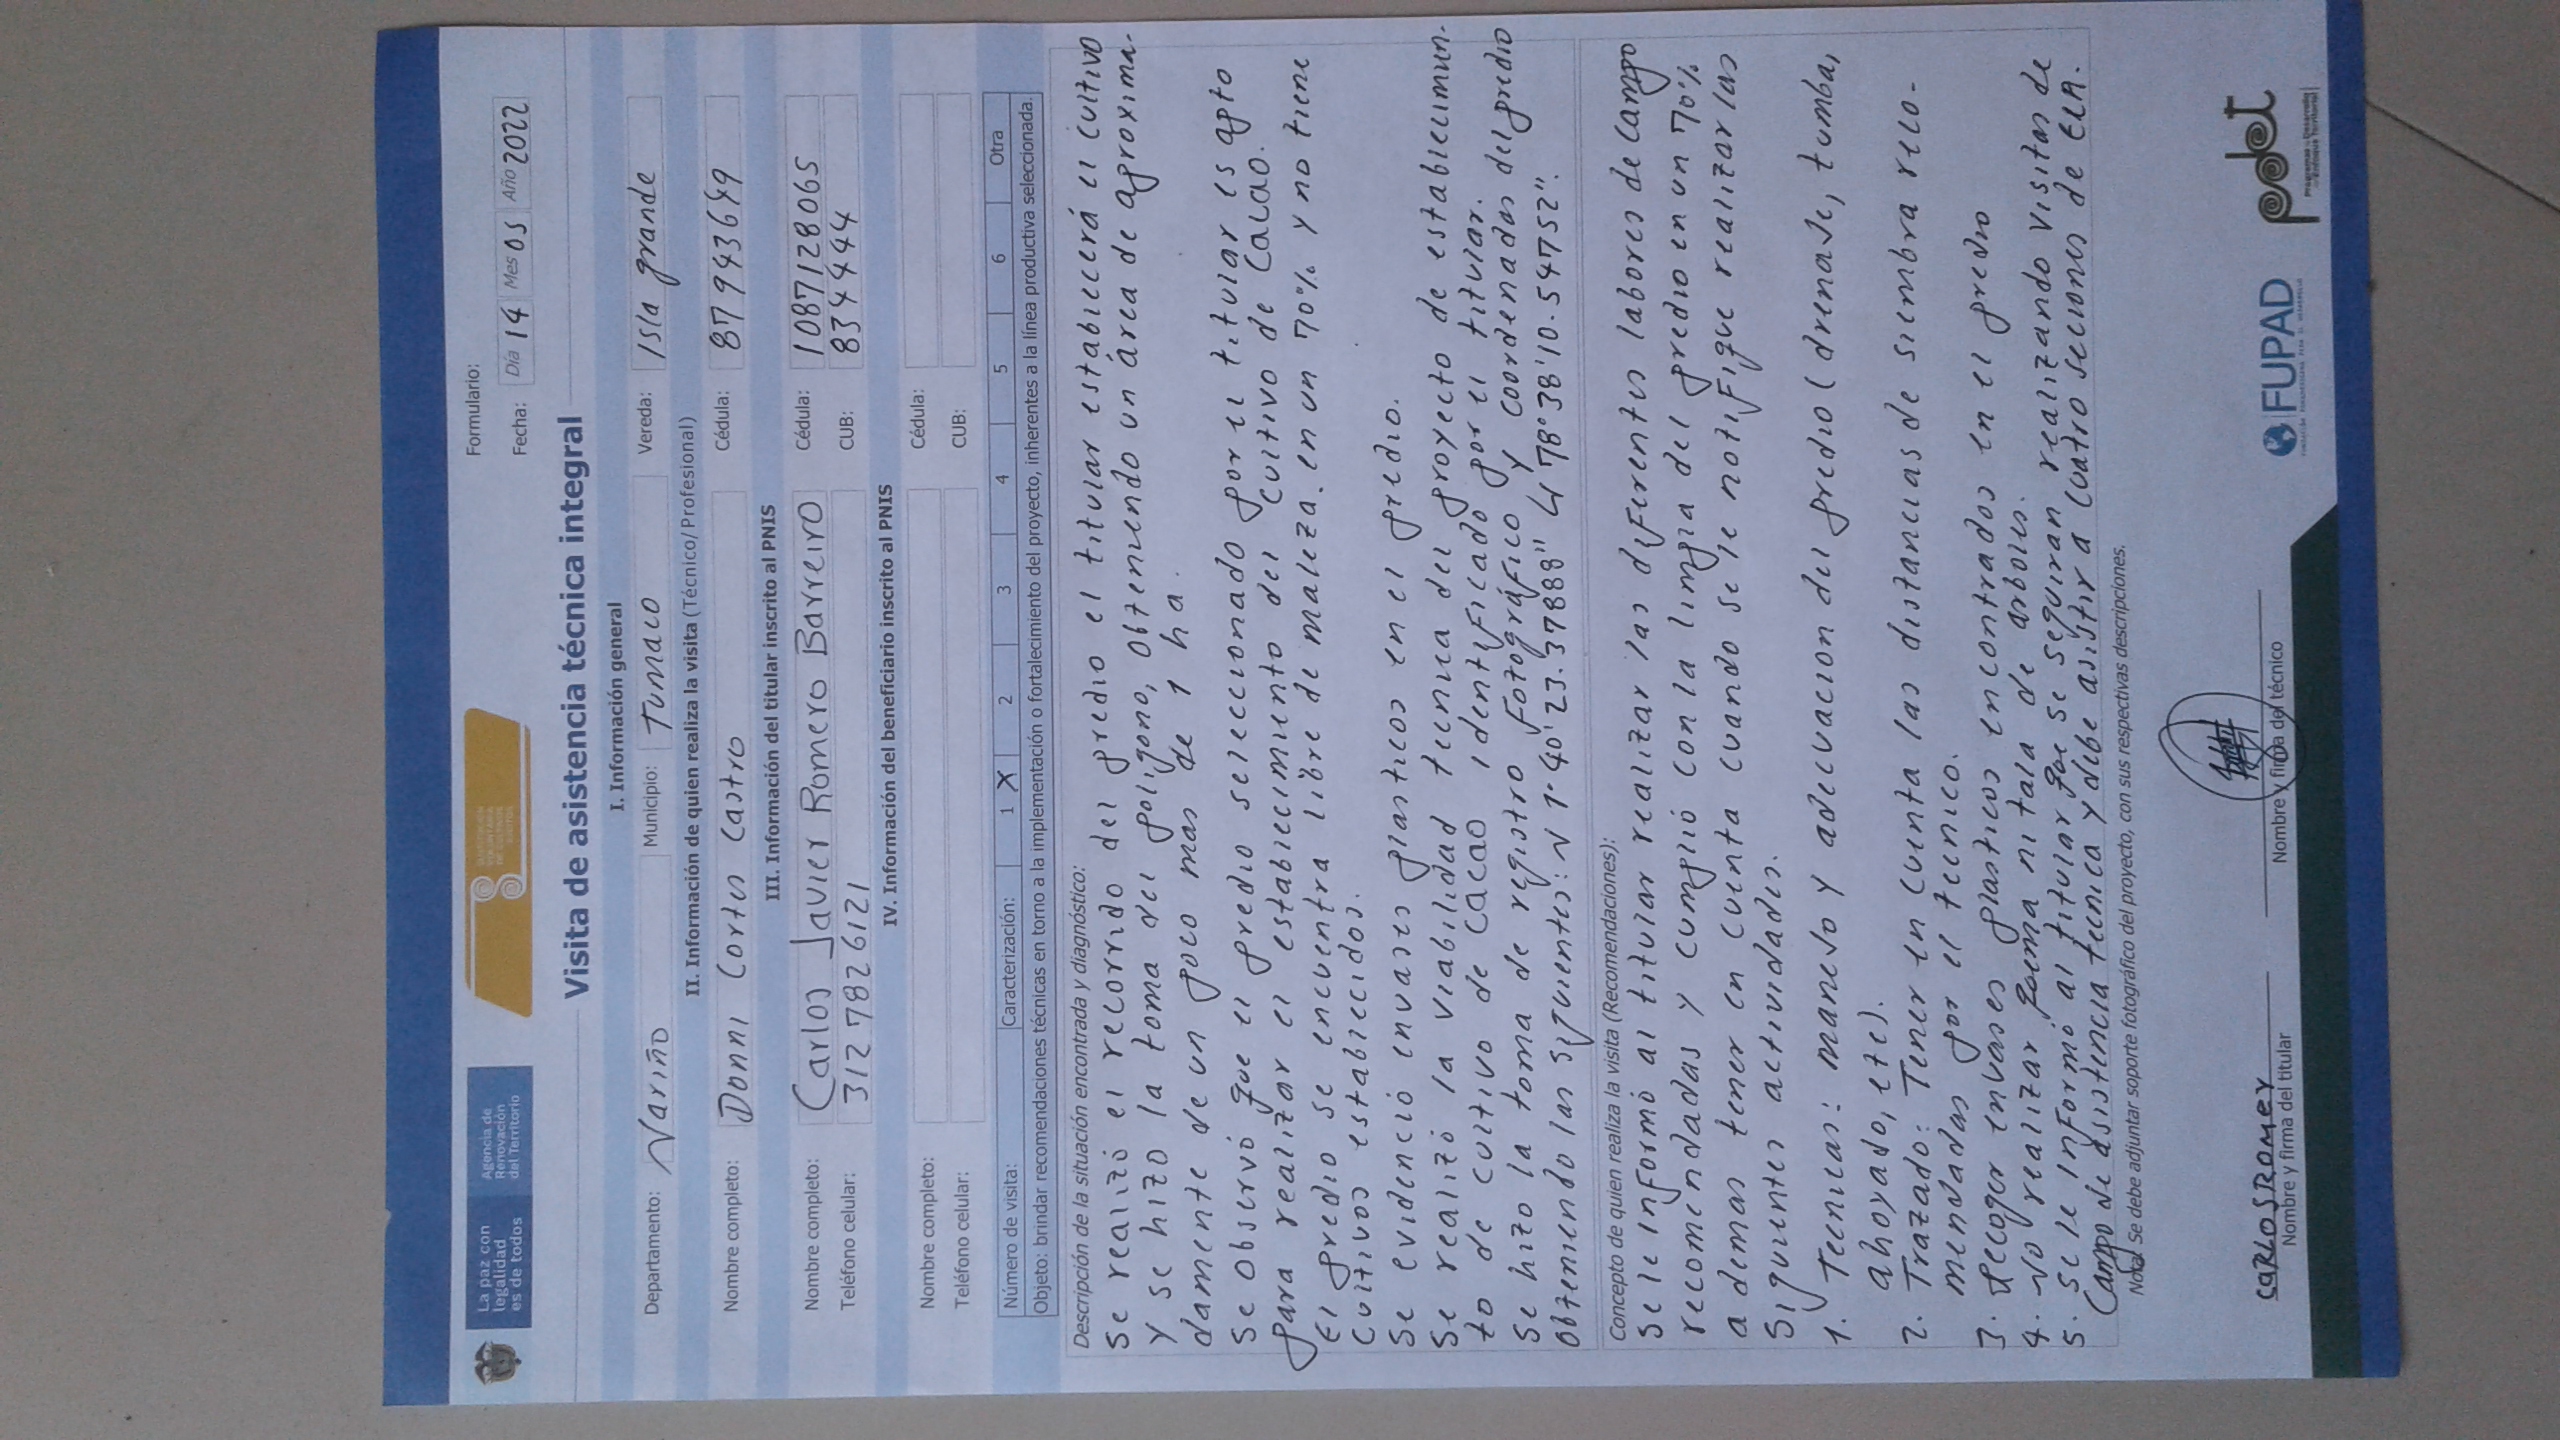 La paz con
legalidad
es de todos
Agencia de
Renovación
del Territorio
SUSTITUCIÓN
VOLUNTARIA
DE CULTIVOS
ILÍCITOS
Formulario:
Fecha: Día 14 Mes 05 Año 2022
Visita de asistencia técnica integral
I. Información general
Departamento: Nariño Municipio: Tumaco Vereda: Isla grande
II. Información de quien realiza la visita (Técnico/Profesional)
Nombre completo: Donni Cortes Castro Cédula: 87943649
III. Información del titular inscrito al PNIS
Nombre completo: Carlos Javier Romero Barreiro Cédula: 1087128065
Teléfono celular: 3127826121 CUB: 834444
IV. Información del beneficiario inscrito al PNIS
Nombre completo: Cédula:
Teléfono celular: CUB:
Número de visita: Caracterización: 1 X 2 3 4 5 6 Otra
Objeto: brindar recomendaciones técnicas en torno a la implementación o fortalecimiento del proyecto, inherentes a la línea productiva seleccionada.
Descripción de la situación encontrada y diagnóstico:
Se realizó el recorrido del predio el titular establecerá el cultivo
y se hizo la toma del poligono, obteniendo un área de aproxima-
damente de un poco mas de 1 ha.
Se observó que el predio seleccionado por el titular es apto
para realizar el establecimiento del cultivo de Cacao.
El predio se encuentra libre de maleza en un 70% y no tiene
cultivos establecidos.
Se evidenció envases plasticos en el predio.
Se realizó la viabilidad tecnica del proyecto de establecimien-
to de cultivo de Cacao identificado por el titular.
Se hizo la toma de registro fotográfico y coordenadas del predio
obteniendo las siguientes: N 1°40'23.37888" W 78°38'10.54752".
Concepto de quien realiza la visita (Recomendaciones):
Se le informó al titular realizar las diferentes labores de campo
recomendadas y cumplió con la limpia del predio en un 70%
ademas tener en cuenta cuando se le notifique realizar las
siguientes actividades.
1. Tecnicas: manejo y adecuacion del predio (drenaje, tumba,
ahoyado, etc).
2. Trazado: Tener en cuenta las distancias de siembra reco-
mendadas por el tecnico.
3. Recoger envases plasticos encontrados en el predio
4. No realizar quema ni tala de arboles.
5. Se le informó al titular que se seguiran realizando visitas de
Campo de asistencia tecnica y debe asistir a cuatro secciones de ECA.
Nota: Se debe adjuntar soporte fotográfico del proyecto, con sus respectivas descripciones.
CARLOSROMEY
Nombre y firma del titular
Nombre y firma del técnico
FUPAD
pdet
Programas de Desarrollo
con Enfoque Territorial